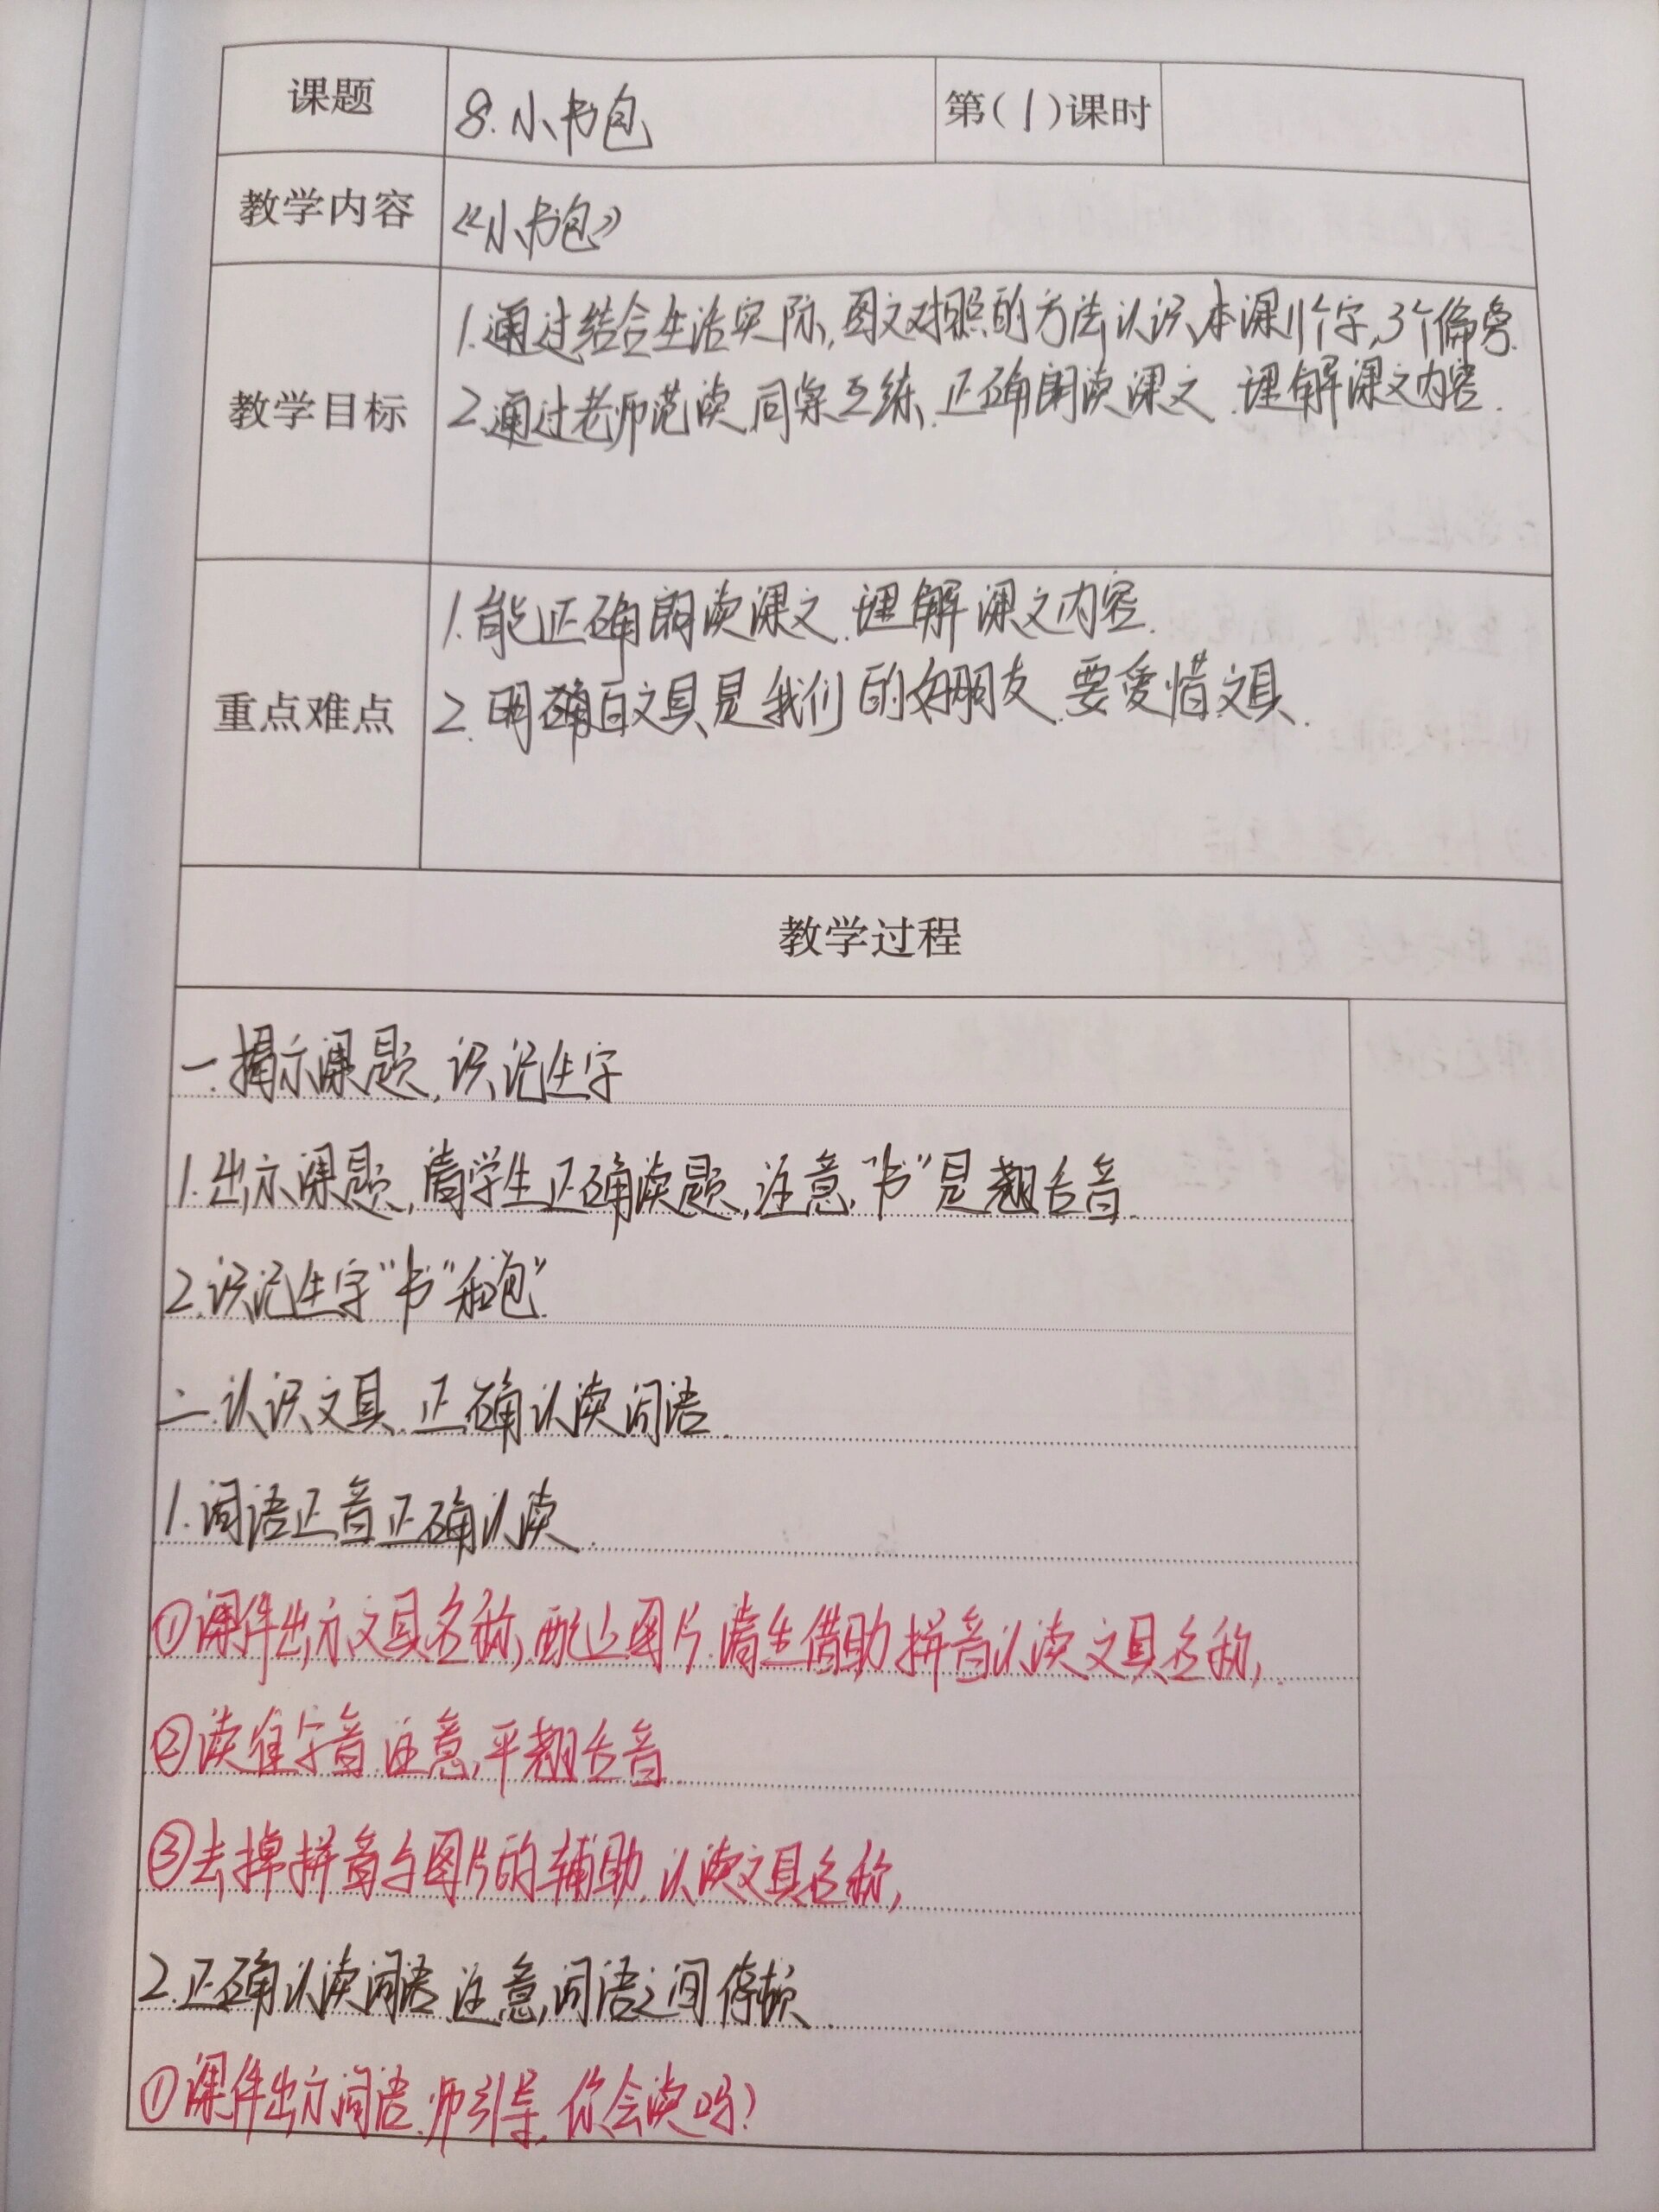 课题 8.小书包 第(1)课时
教学内容 《小书包》
教学目标
1.通过结合生活实际,图文对照的方法认识本课11个字,3个偏旁.
2.通过老师范读,同桌互练,正确朗读课文.理解课文内容.
重点难点
1.能正确朗读课文.理解课文内容.
2.明确白文具是我们的好朋友.要爱惜文具.
教学过程
一.揭示课题,识记生字
1.出示课题,请学生正确读题,注意,"书"是翘舌音.
2.识记生字"书"和"包".
二.认识文具.正确认读词语.
1.词语正音正确认读.
①课件出示文具名称,配上图片.请生借助拼音认读文具名称,
②读准字音.注意,平翘舌音.
③去掉拼音与图片的辅助.认读文具名称,
2.正确认读词语.注意,词语之间停顿.
①课件出示词语.师引导,你会读吗?